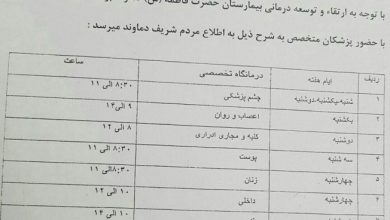 با توجه به ارتقاء و توسعه درمانی بیمارستان حضرت فاطمه
با حضور پزشکان متخصص به شرح ذیل به اطلاع مردم شریف دماوند میرسد :
ردیف ایام هفته درمانگاه تخصصی ساعت
۱ شنبه-یکشنبه-دوشنبه چشم پزشکی ۸:۳۰ الی ۱۱
۲ یکشنبه اعصاب و روان ۹ الی ۱۴
۳ دوشنبه کلیه و مجاری ادراری ۸ الی ۱۲
۴ سه شنبه پوست ۸:۳۰ الی ۱۱
۵ چهارشنبه زنان ۸:۳۰ الی ۱۱
چهارشنبه داخلی ۱۰ الی ۱۲
۱۰ الی ۱۴